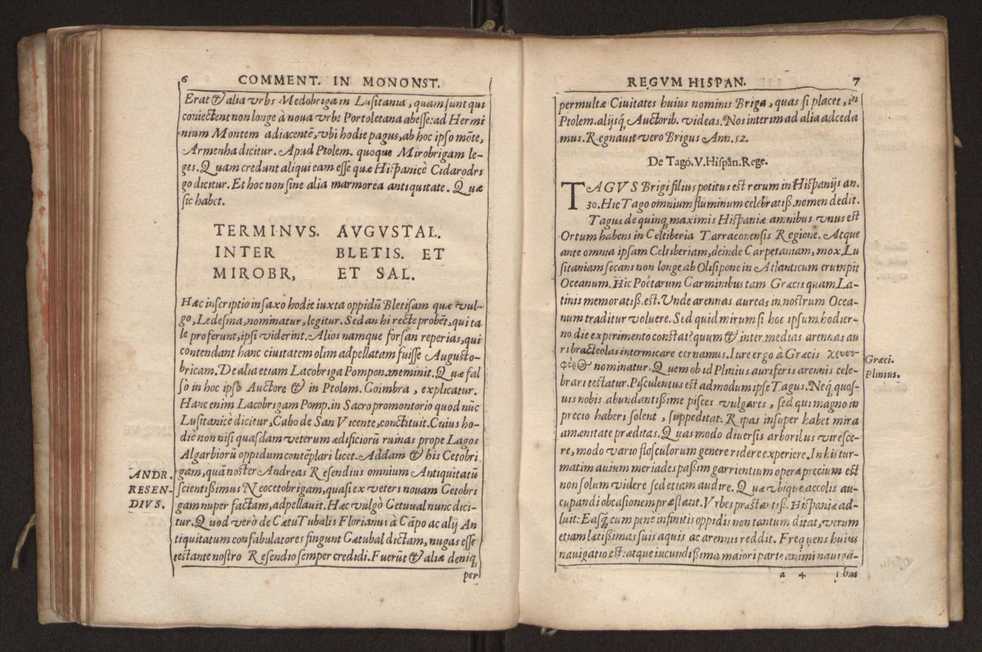 6 COMMENT. IN MONONST.
Erat & alia vrbs Medobriga in Lusitania, quam sunt qui
coniectent non longè à noua vrbe Portoletana abesse: ad Hermi
nium Montem adiacentē, vbi hodie pagus, ab hoc ipso mōte,
Armenha dicitur. Apud Ptolem. quoque Mirobrigam le-
ges. Quam credunt aliqui eam esse quæ Hispanicè Cidarodri
go dicitur. Et hoc non sine alia marmorea antiquitate. Quæ
sic habet.
TERMINVS. AVGVSTAL.
INTER BLETIS. ET
MIROBR, ET SAL.
Hæc inscriptio in saxo hodie iuxta oppidū Bletisam quæ vul-
go, Ledesma, nominatur, legitur. Sed an hi rectè probēt, qui ta
le proferunt, ipsi viderint. Alios namque forsan reperias, qui
contendant hanc ciuitatem olim appellatam fuisse Augusto-
bricam. De alia etiam Lacobriga Pompon. meminit. Quæ fal
sò in hoc ipso Auctore & in Ptolem. Coimbra, explicatur.
Hanc enim Lacobrigam Pomp. in Sacro promontorio quod nūc
Lusitanicè dicitur, Cabo de San Vicente, conctituit. Cuius ho-
diè non nisi quasdam veterum ædisiciorū ruinas prope Lagos
Algarbiorū oppidum contēplari licet. Addam & his Cetobri
gam, quā noster Andreas Resendius omnium Antiquitatū
scientissimus Neocetobrigam, quasi ex veteri nouam Cetobri
gam nuper factam, adpellauit. Hæc vulgò Cetuual nunc dici-
tur. Quod verò de Cætu Tubalis Florianus à Cāpo ac alij An
tiquitatum confabulatores fingunt Cætubal dictam, nugas esse
testante nostro Resendio semper credidi. Fuerūt & aliæ deniq;
per
ANDR.
RESEN-
DIVS.
REGVM HISPAN. 7
permultæ Ciuitates huius nominis Briga, quas si placet, in
Ptolem. alijsq; Auctorib. videas. Nos interim ad alia adceda
mus. Regnauit vero Brigus Ann. 52.
De Tago. V. Hispan. Rege.
TAGVS Brigi filius potitus est rerum in Hispanijs an.
30. Hic Tago omnium fluminum celebratiss. nomen dedit.
Tagus de quinq; maximis Hispaniæ amnibus vnus est
Ortum habens in Celtiberia Tarraconensis Regione. Atque
ante omnia ipsam Celtiberiam, deinde Carpetaniam, mox Lu
sitaniam secans non longe ab Olisipone in Atlanticum erumpit
Oceanum. Hic Poëtarum Carminibus tam Græcis quam La-
tinis memoratiss. est. Unde arennas aureas in nostrum Ocea-
num traditur voluere. Sed quid mirum si hoc ipsum hodier-
no die experimento constat? quum & inter medias arennas au
ri bracteolas intermicare cernamus. Iure ergo à Græcis
nominatur. Quem ob id Plinius auriferis arennis cele-
brari testatur. Pisculentus est admodum ipse Tagus. Neq; quos-
uis nobis abundantissime pisces vulgares, sed qui magno in
precio haberi solent, suppeditat. Ripas insuper habet mira
amœnitate præditas. Quas modo diuersis arboribus viresce-
re, modo vario flosculorum genere ridere experiere. In his tur-
matim auium meriades passim garrientium operæ precium est
non solum videre sed etiam audire. Quæ vbique accolis au-
cupandi obcasionem præstant. Vrbes præstantiss. Hispaniæ ad-
luit: Easq; cum pene infinitis oppidis non tantum ditat, verum
etiam latissimas suis aquis ac arennis reddit. Frequens huius
nauigatio est: atque iucundissima maiori parte animi nauigā-
a 4 ibus
Græci.
Plinius.